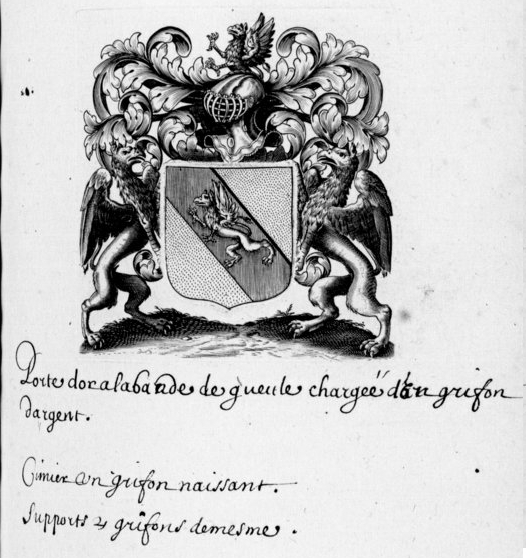 Porte dor alabande de gueule chargeé d'un grifon
dargent.
Cimier un grifon naissant.
Supports 2 grifons demesme.